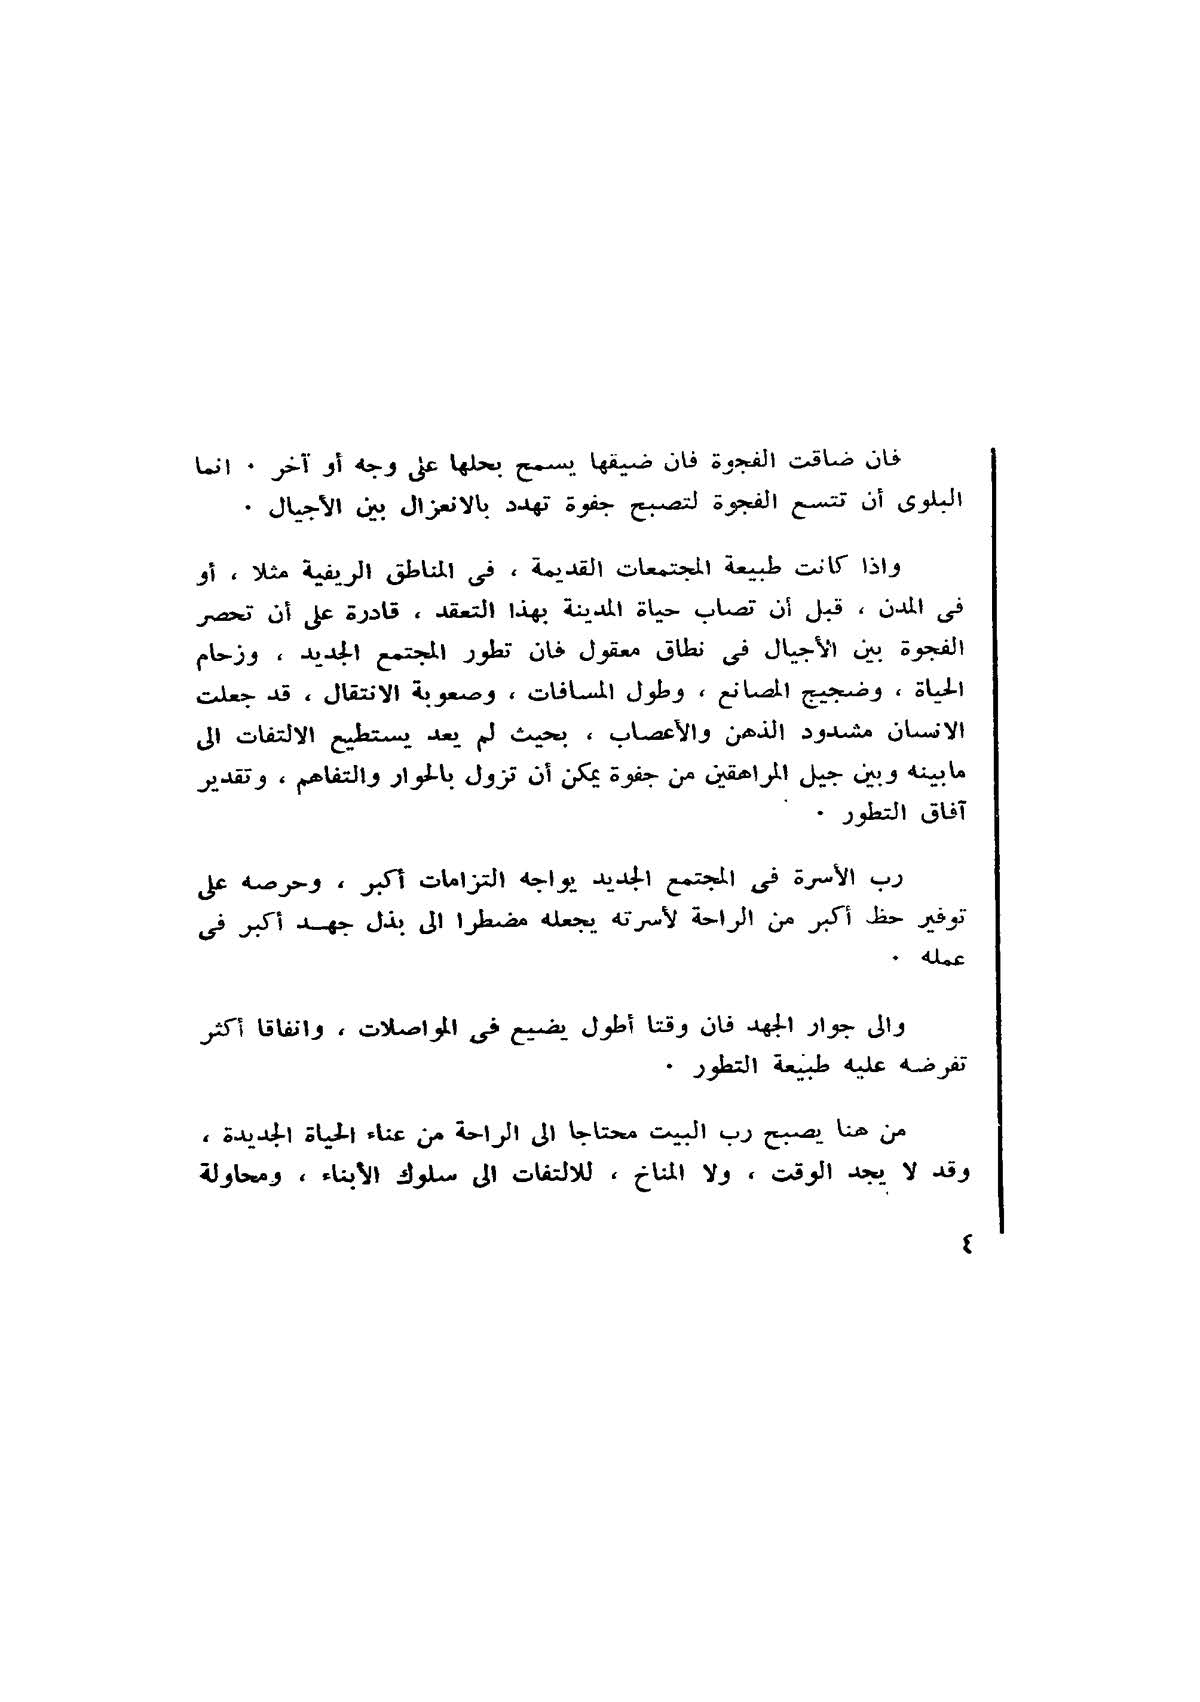 فان ضاقت الفجوة فان ضيقها يسمح بحلها على وجه أو آخر ٠ انما
البلوى أن تتسع الفجوة لتصبح جفوة تهدد بالانعزال بين الأجيال ٠
واذا كانت طبيعة المجتمعات القديمة ، فى المناطق الريفية مثلا ، أو
فى المدن ، قبل أن تصاب حياة المدينة بهذا التعقد ، قادرة على أن تحصر
الفجوة بين الأجيال فى نطاق معقول فان تطور المجتمع الجديد ، وزحام
الحياة ، وضجيج المصانع ، وطول المسافات ، وصعوبة الانتقال ، قد جعلت
الانسان مشدود الذهن والأعصاب ، بحيث لم يعد يستطيع الالتفات الى
مابينه وبين جيل المراهقين من جفوة يمكن أن تزول بالحوار والتفاهم ، وتقدير
آفاق التطور ٠
رب الأسرة فى المجتمع الجديد يواجه التزامات أكبر ، وحرصه على
توفير حظ أكبر من الراحة لأسرته يجعله مضطرا الى بذل جهـد أكبر فى
عمله ٠
والى جوار الجهد فان وقتا أطول يضيع فى المواصلات ، وانفاقا أكثر
تفرضه عليه طبيعة التطور ٠
من هنا يصبح رب البيت محتاجا الى الراحة من عناء الحياة الجديدة ،
وقد لا يجد الوقت ، ولا المناخ ، للالتفات الى سلوك الأبناء ، ومحاولة
٤